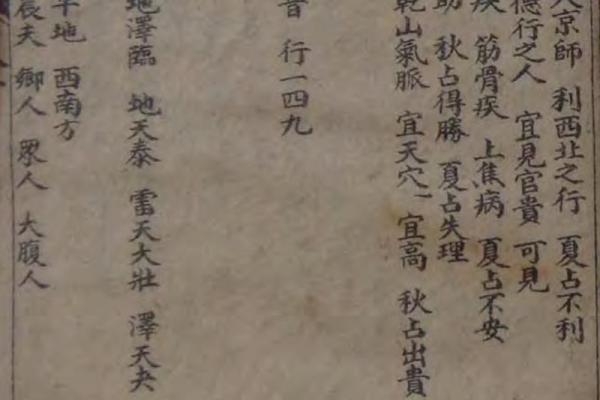 京師 利西北之行 夏占不利
德行之人 宜見官貴 可見
疾 筋骨疾 上焦病 夏占不安
秋占得勝 夏占失理
乾山氣脈 宜天穴 宜高 秋占出貴
音 行一四九
地澤臨 地天泰 雷天大壯 澤天夬
平地 西南方
農夫 鄉人 眾人 大腹人